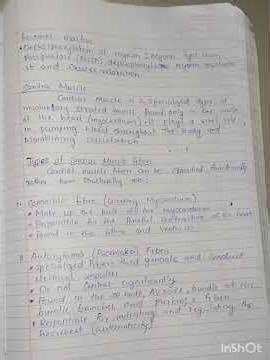 becomes inactive
• Dephosphorylation of myosin: Myosin light chain
Phosphatase (MLCP) dephosphorylates myosin
it and causes relaxation
Cardiac Muscle
Cardiac muscle is a specialized type of
involuntary striated muscle found only in the walls
of the heart (myocardium). It plays a vital role
in pumping blood throughout the body and
maintaining circulation
Types of Cardiac Muscle Fiber
Cardiac muscle fiber can be classified functionally
rather than structurally into:
Contractile fibre (working Myocardium)
• Make up the bulk of the myocardium
• Responsible for the forceful contraction of the heart
• Found in the atria and ventricles
Autorhythmic (Pacemaker) Fibers
• Specialized fibers that generate and conduct
electrical impulses
• Do not contract significantly
• Found in the SA node, AV node, bundle of His
bundle branches and Purkinje fibers
• Responsible for initiating and regulating the
heartbeat (automaticity)
InShOt